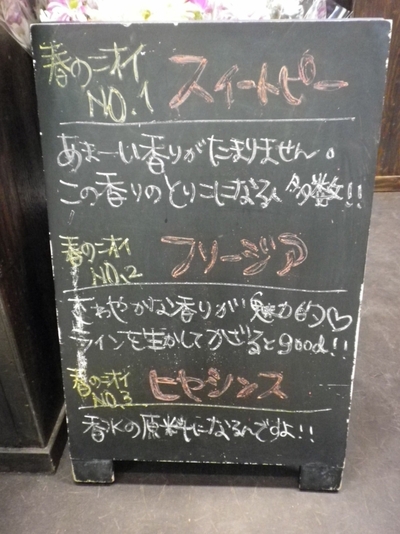 春のニオイ
NO.1 スイートピー
あまーい香りがたまりません。
この香りのとりこになる人多数!!
春のニオイ
NO.2 フリージア
さわやかな香りが魅力的♡
ラインを生かしてかざるとgood!!
春のニオイ
NO.3 ヒヤシンス
香水の原料になるんですよ!!